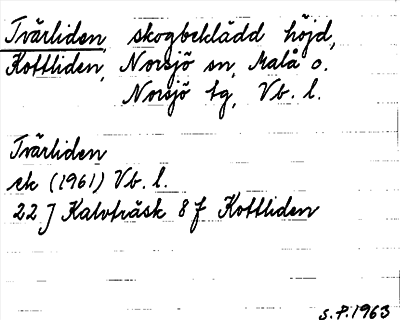 Tvärliden, skogbeklädd höjd,
Kottliden, Norsjö sn, Malå o.
Norsjö tg, Vb. l.
Tvärliden
ek (1961) Vb. l.
22 J Kalvträsk 8 f Kottliden
S.P. 1963